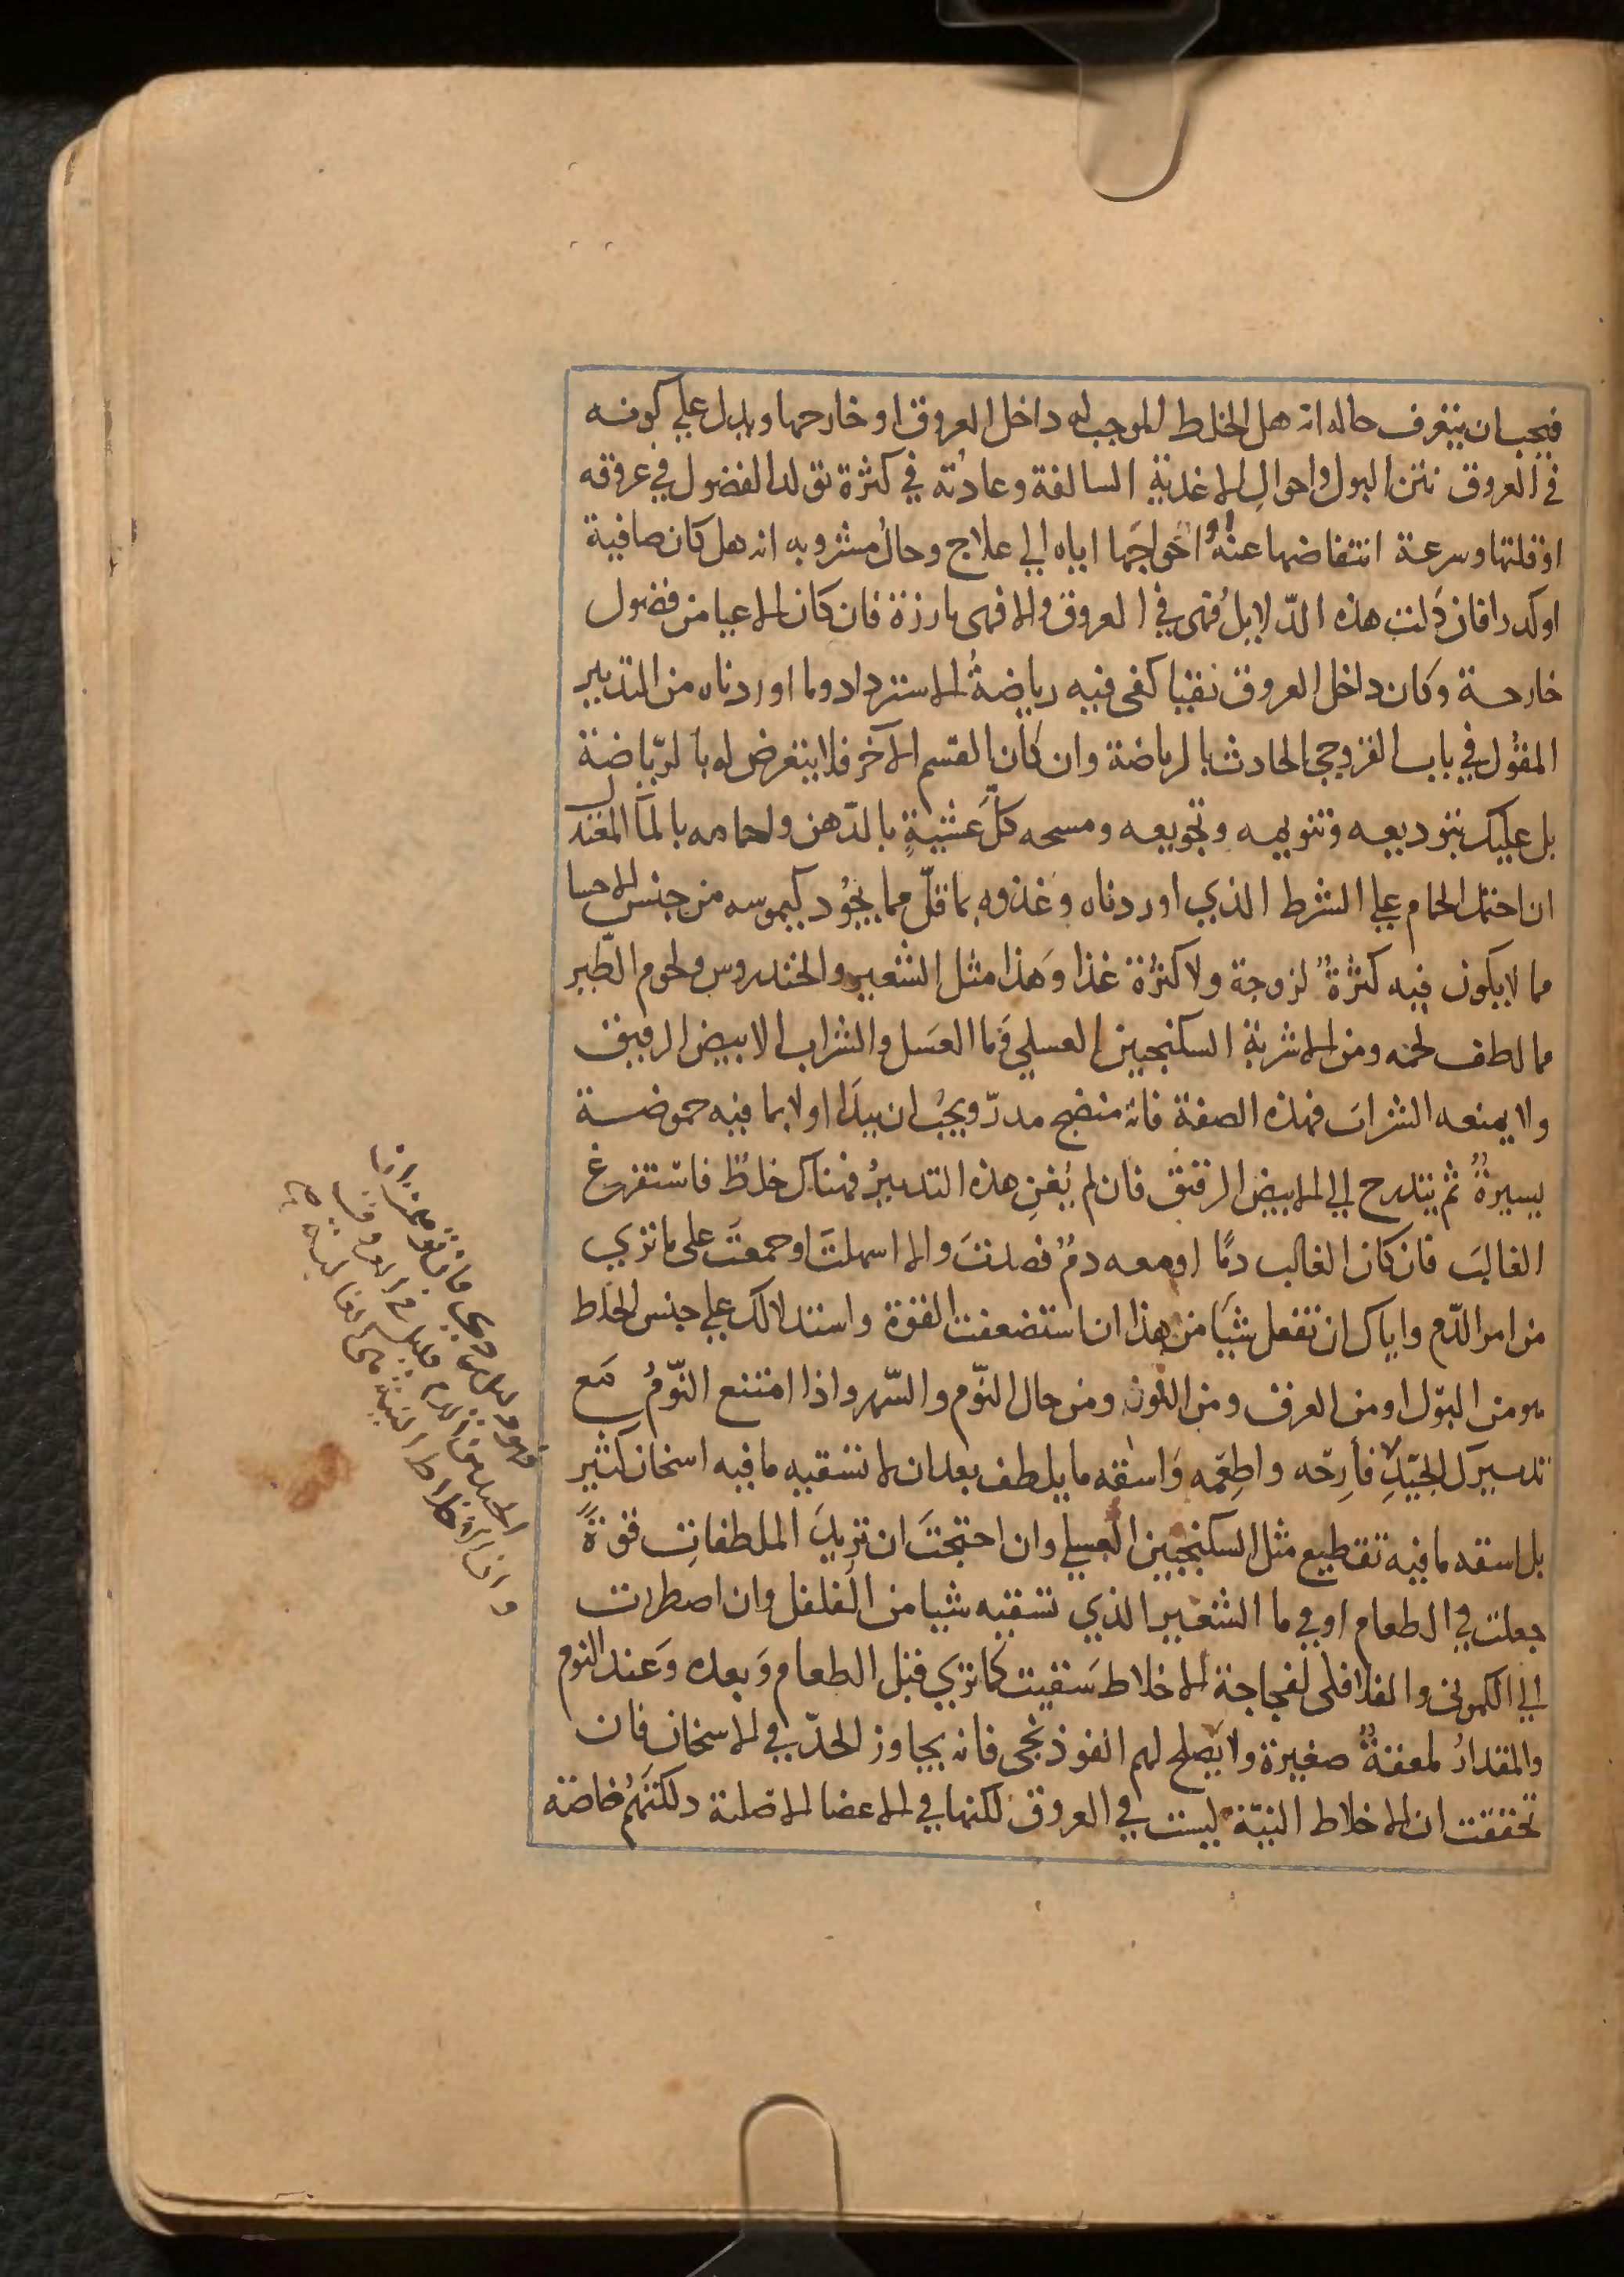 فيجب ان يتعرف حاله انه هل الخلط الموجب له داخل العروق او خارجها ويدل علي كونه
في العروق نتن البول واحوال الاغذية السالفة وعادته في كثرة تولد الفضول في عروقه
او قلتها وسرعة انتفاضها عنه او اخواجها اياه الي علاج وحال مشروبه انه هل كان صافية
او كدرا فان دلت هذه الدّلايل فهي في العروق والا فهي بارزة فان كان الاعيا من فضول
خارجة وكان داخل العروق نقيا كفى فيه رياضةُ الاسترداد وما اوردناه من التدبير
المقول في باب القروحي الحادث بالرياضة وان كان القسم الآخر فلا يتعرض له بالرّياضة
بل عليك بتوديعه وتنويمه وتجويعه ومسحه كلّ عَشيةٍ بالدّهن واحمامه بالمآ المعتدل
ان احتمل الحمام علي الشرط الذي اوردناه وغذوه بما قلّ مما يجُود كيموسه من جنس الاحسا
مما لا يكون فيه كثرةُ لزوجة ولا كثرة غذا وهذا مثل الشعير والخندروس ولحوم الطّير
مما لطف لحمه ومن الاشربة السكنجبين العسلي وما العسَل والشراب الابيض الرقيق
ولا يمنعه الشرابَ فهذه الصفة فانه منضج مدرّ ويجبُ ان يبدَا اولا بما فيه حموضة
يسيرةٌ ثم يتدرج الي الابيض الرقيق فان لم يُغنِ هذه التدبيرُ فهناك خلطٌ فاستفرغ
الغالبَ فان كان الغالب دمًا او معه دمٌ فصدتَ والا اسهلتَ او جمعتَ على ما تري
من امر الدّم واياك ان تفعل شيَا من هذا ان استضعفت القوة واستدلالك علي جنس الخلط
هو من البَول او من العرق ومن اللون ومن حال النّوم والسّهر واذا امتنع النّومُ مَع
تدبيرك الجيّدِ فأرِحّه واطِعّمه وَاسقه ما يلطف بعد ان لا تسقيه ما فيه اسخان كثير
بل اسقه ما فيه تقطيع مثل السكنجبين العسلي وان احتجتَ ان تزيدَ الملطفاتِ قوةً
جعلت في الطعام او في ما الشعير الذي تسقيه شيا من الفلفل وان اضطررت
الي الكموني والفلافلى لفجاجة الاخلاط سَقيت كما تري قبل الطعام وَبعده وَعند النوم
والمقدارُ لمعقةٌ صغيرة ولا يصلح لهم الفوذنجي فانه يجاوز الحدّ في الاسخان فان
تحققت ان الاخلاط النيّة ليست في العروق لكنها في الاعضا الاصلية دلكتَهُم خاصة